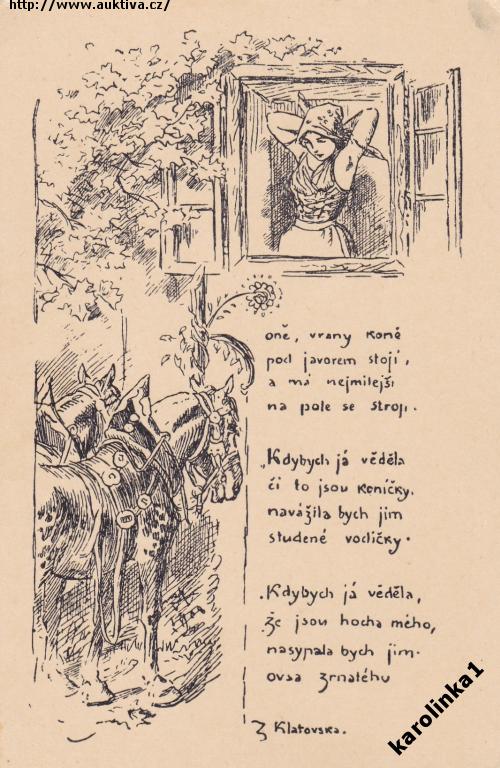 http://www.auktiva.cz/
oně, vrany koně
pod javorem stojí,
a má nejmilejší
na pole se strojí.
„Kdybych já věděla
čí to jsou koníčky,
navážila bych jim
studené vodičky.
„Kdybych já věděla,
že jsou hocha mého,
nasypala bych jim
ovsa zrnatého
Z Klatovska.
karolinka1